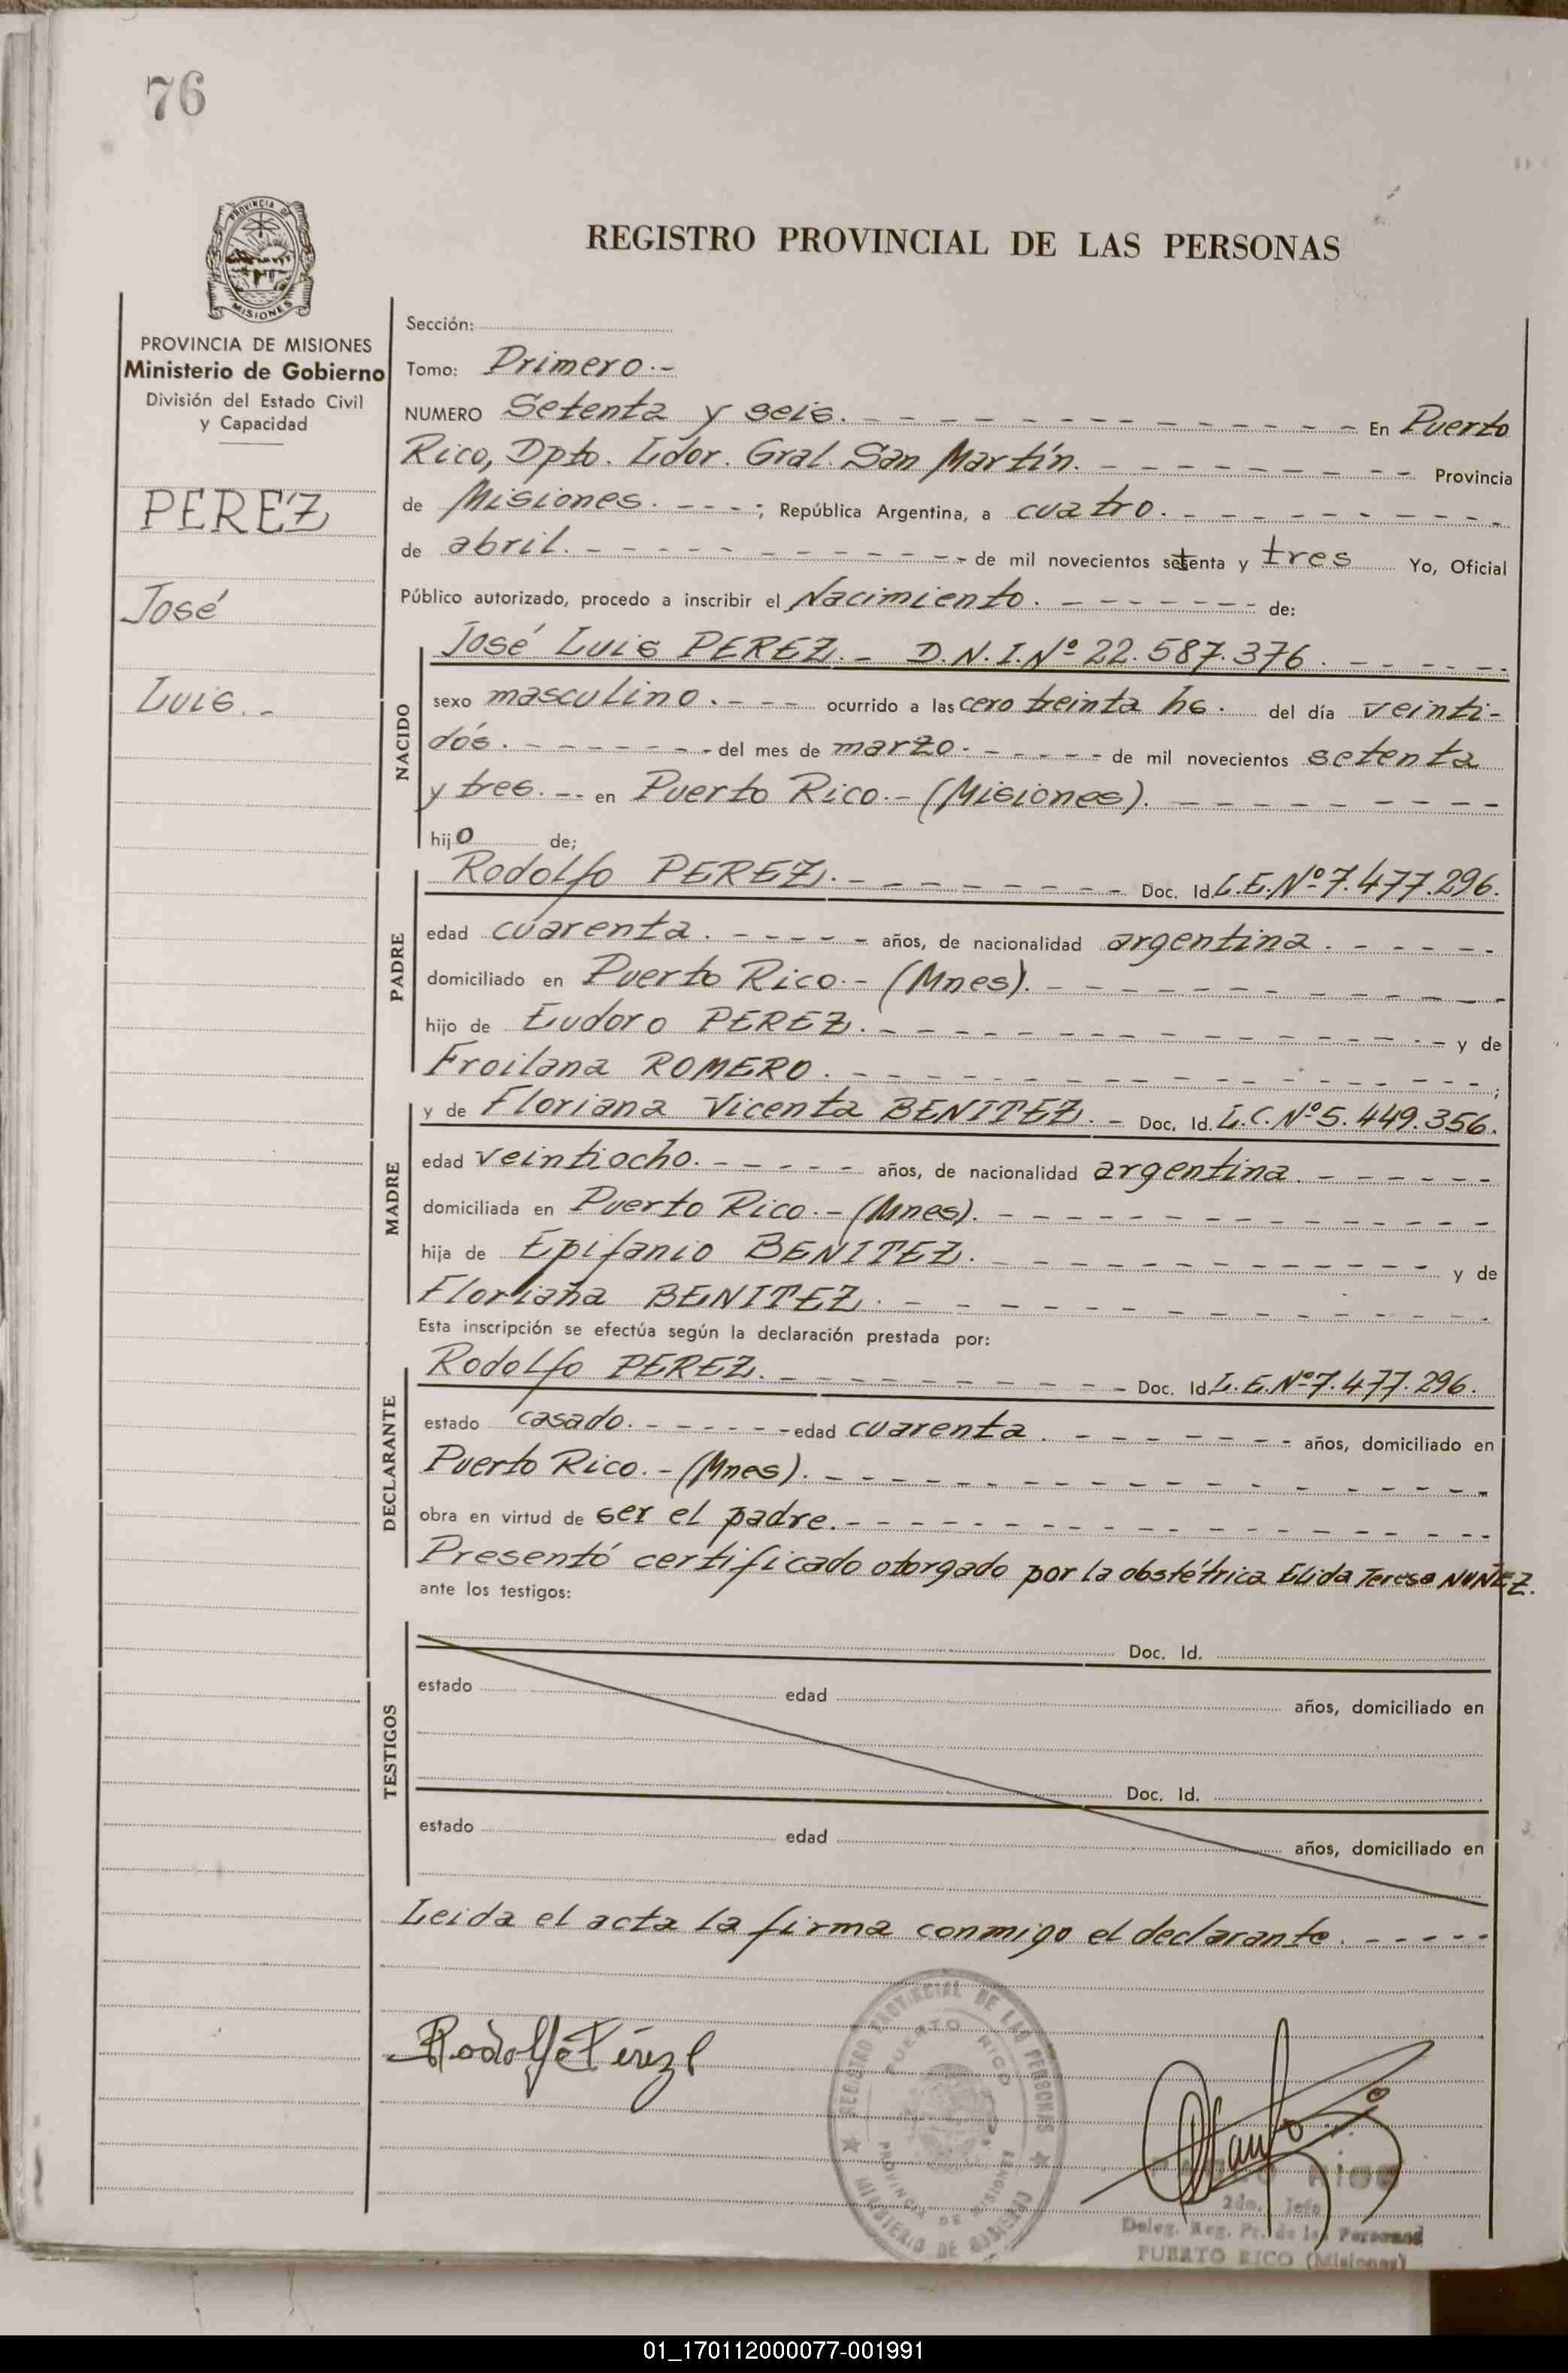 76
PROVINCIA DE
MISIONES
REGISTRO PROVINCIAL DE LAS PERSONAS
PROVINCIA DE MISIONES
Ministerio de Gobierno
División del Estado Civil
y Capacidad
PEREZ
José
Luis.-
Sección:
Tomo: Primero.-
NUMERO Setenta y seis. - - - En Puerto
Rico, Dpto. Ldor. Gral. San Martín. - - - Provincia
de Misiones. - - - -; República Argentina, a cuatro. - - -
de abril. - - - de mil novecientos setenta y tres Yo, Oficial
Público autorizado, procedo a inscribir el Nacimiento. - - - de:
NACIDO
José Luis PEREZ.- D.N.I.Nº 22.587.376. - - -
sexo masculino. - - - ocurrido a las cero treinta hs. del día veinti-
dós. - - - del mes de marzo. - - - de mil novecientos setenta
y tres. -- en Puerto Rico.-(Misiones). - - -
hijo de;
PADRE
Rodolfo PEREZ. - - - Doc. Id. L.E.Nº 7.477.296.
edad cuarenta. - - - años, de nacionalidad argentina. - - -
domiciliado en Puerto Rico.-(Mnes). - - -
hijo de Eudoro PEREZ. - - - y de
Froilana ROMERO. - - - ;
MADRE
y de Floriana Vicenta BENITEZ. - Doc. Id. L.C.Nº 5.449.356.
edad veintiocho. - - - años, de nacionalidad argentina. - - -
domiciliada en Puerto Rico.-(Mnes). - - -
hija de Epifanio BENITEZ. - - - y de
Floriana BENITEZ. - - -
Esta inscripción se efectúa según la declaración prestada por:
DECLARANTE
Rodolfo PEREZ. - - - Doc. Id. L.E.Nº 7.477.296.
estado casado. - - - edad cuarenta. - - - años, domiciliado en
Puerto Rico.-(Mnes). - - -
obra en virtud de ser el padre. - - -
Presentó certificado otorgado por la obstétrica Elida Teresa NUÑEZ.
ante los testigos:
TESTIGOS
Doc. Id.
estado edad años, domiciliado en
Doc. Id.
estado edad años, domiciliado en
Leida el acta la firma conmigo el declarante. - - - - -
Rodolfo Pérez
REGISTRO PROVINCIAL DE LAS PERSONAS
PUERTO RICO
PROVINCIA DE MISIONES
MINISTERIO DE GOBIERNO
2do. Jefe
Deleg. Reg. Pr. de las Personas
PUERTO RICO (Misiones)
01_170112000077-001991